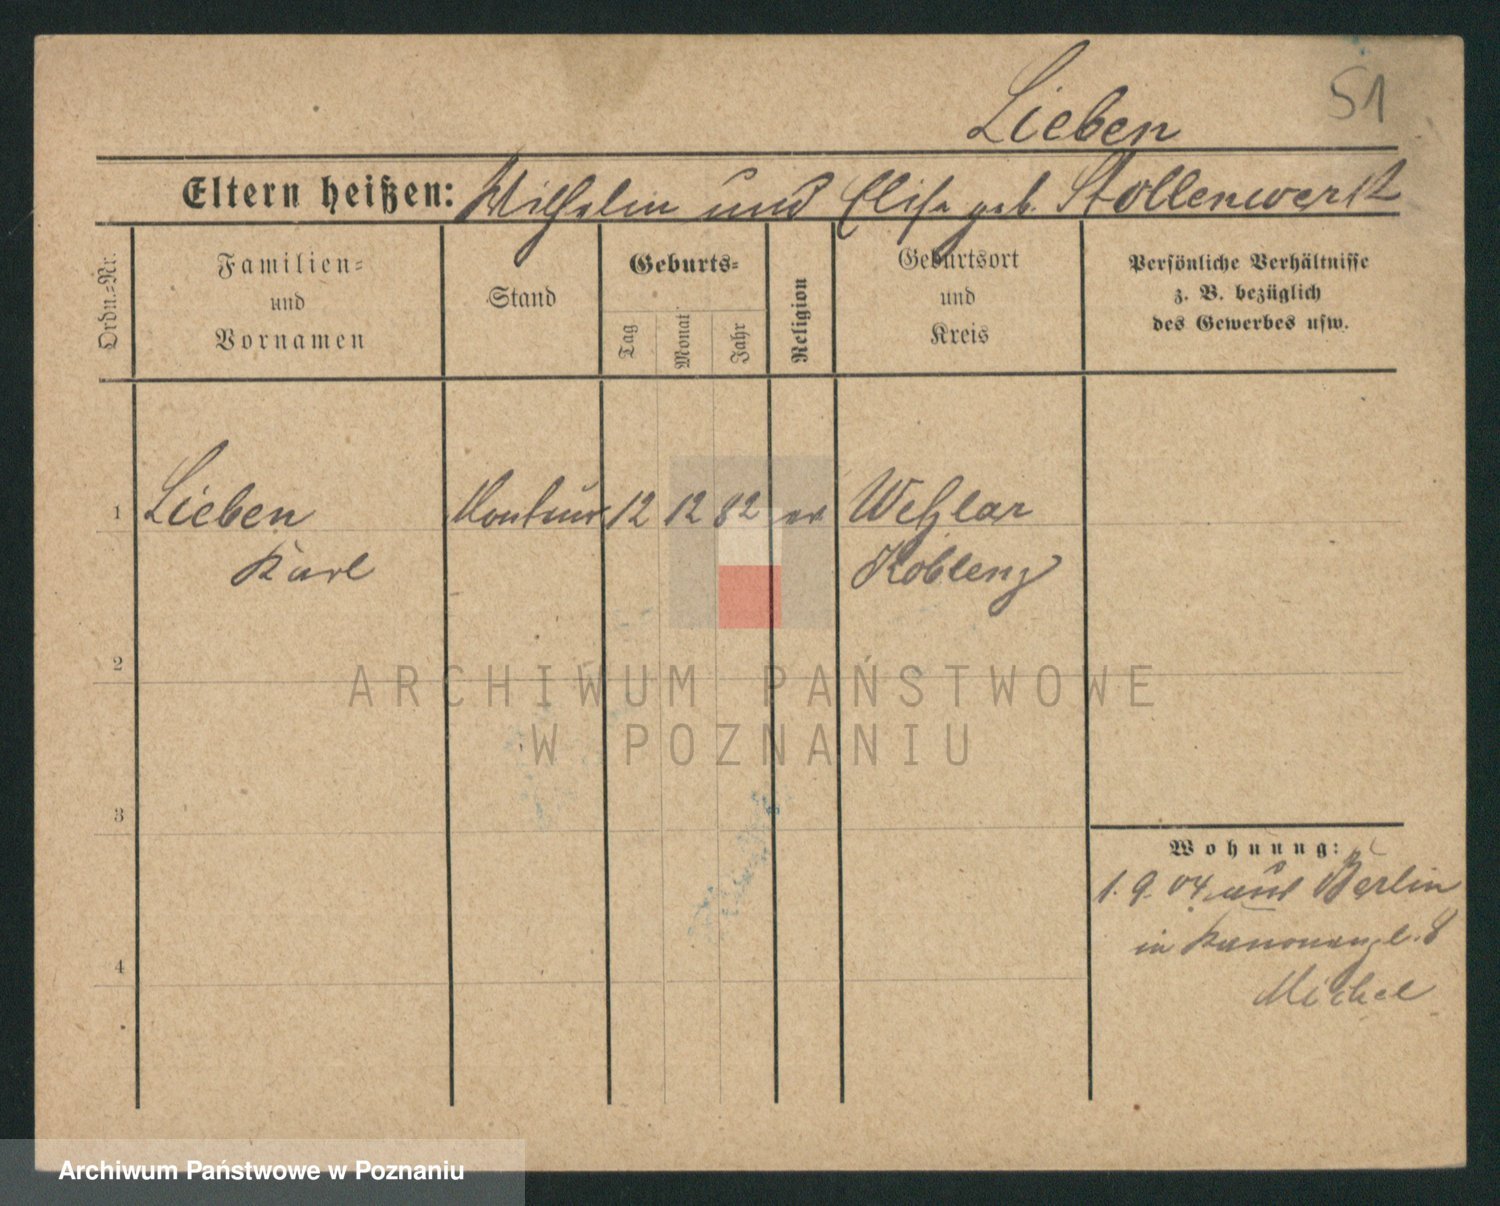 51
Lieben
Eltern heißen: Wilhelm und Elise geb. Stollenwerk
Ordn.=Nr.
Familien=
und
Vornamen
Stand
Geburts=
Tag
Monat
Jahr
Religion
Geburtsort
und
Kreis
Persönliche Verhältnisse
z. B. bezüglich
des Gewerbes usw.
1 Lieben Monteur 12 12 82 ev Wetzlar
Karl Koblenz
2
3
4
Wohnung:
1. 9. 04 aus Berlin
in Kanonenpl. 8
Michel
ARCHIWUM PAŃSTWOWE
W POZNANIU
Archiwum Państwowe w Poznaniu